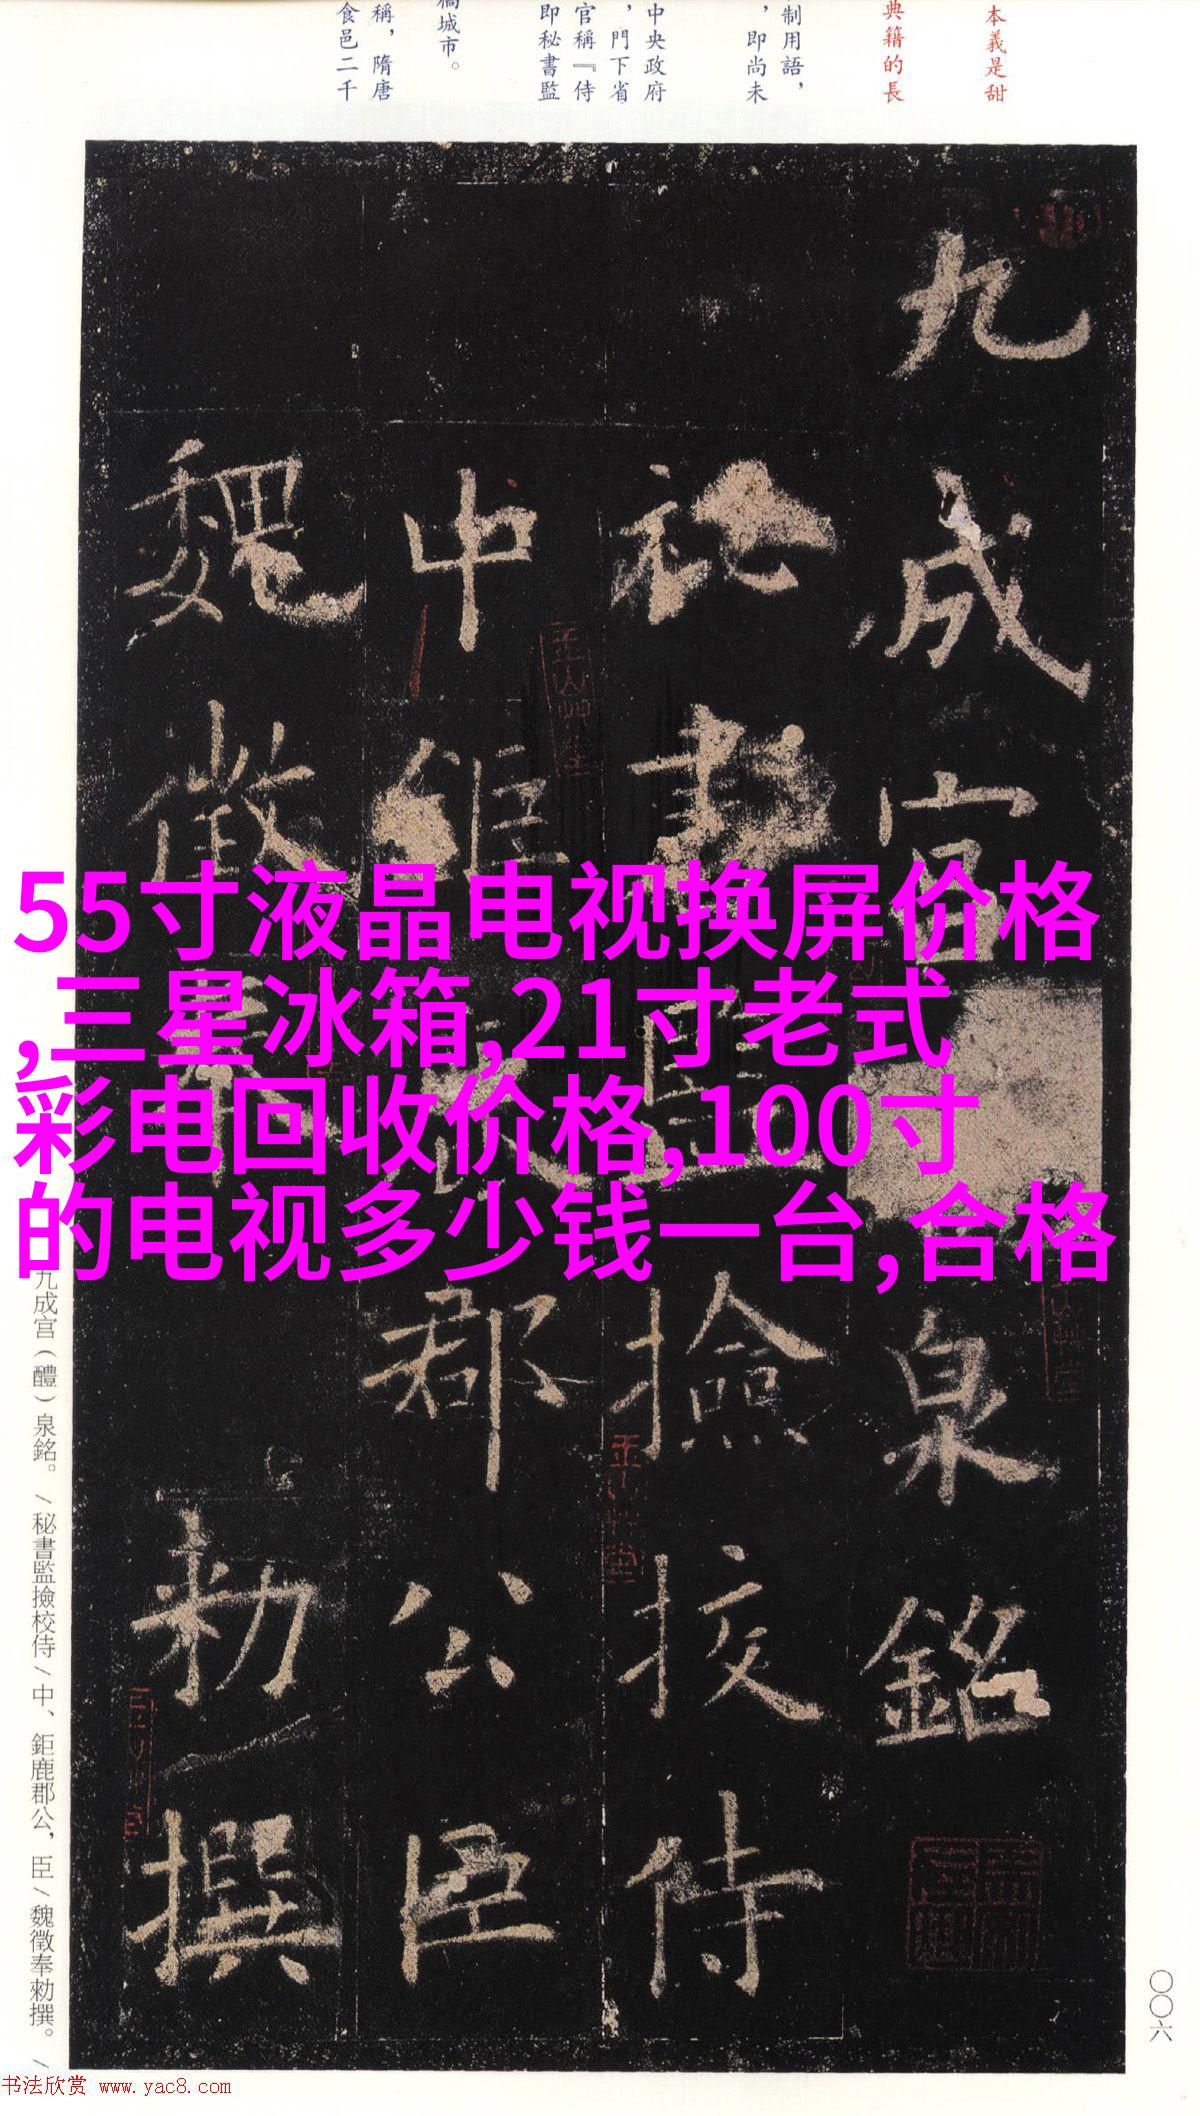 本義是甜
典籍的長
制用語，
，即尚未
中央政府
，門下省
官稱『侍
即秘書監
城市。
稱，隋唐
食邑二千
九成宮
泉銘
祕書監撿挍侍
中
郡公臣
魏徵奉
勑撰
55寸液晶电视换屏价格
,三星冰箱,21寸老式
彩电回收价格,100寸
的电视多少钱一台,合格
九成宮（醴）泉銘。/秘書監撿校侍/中、鉅鹿郡公，臣/魏徵奉勑撰。/
〇〇六
书法欣赏 www.yac8.com